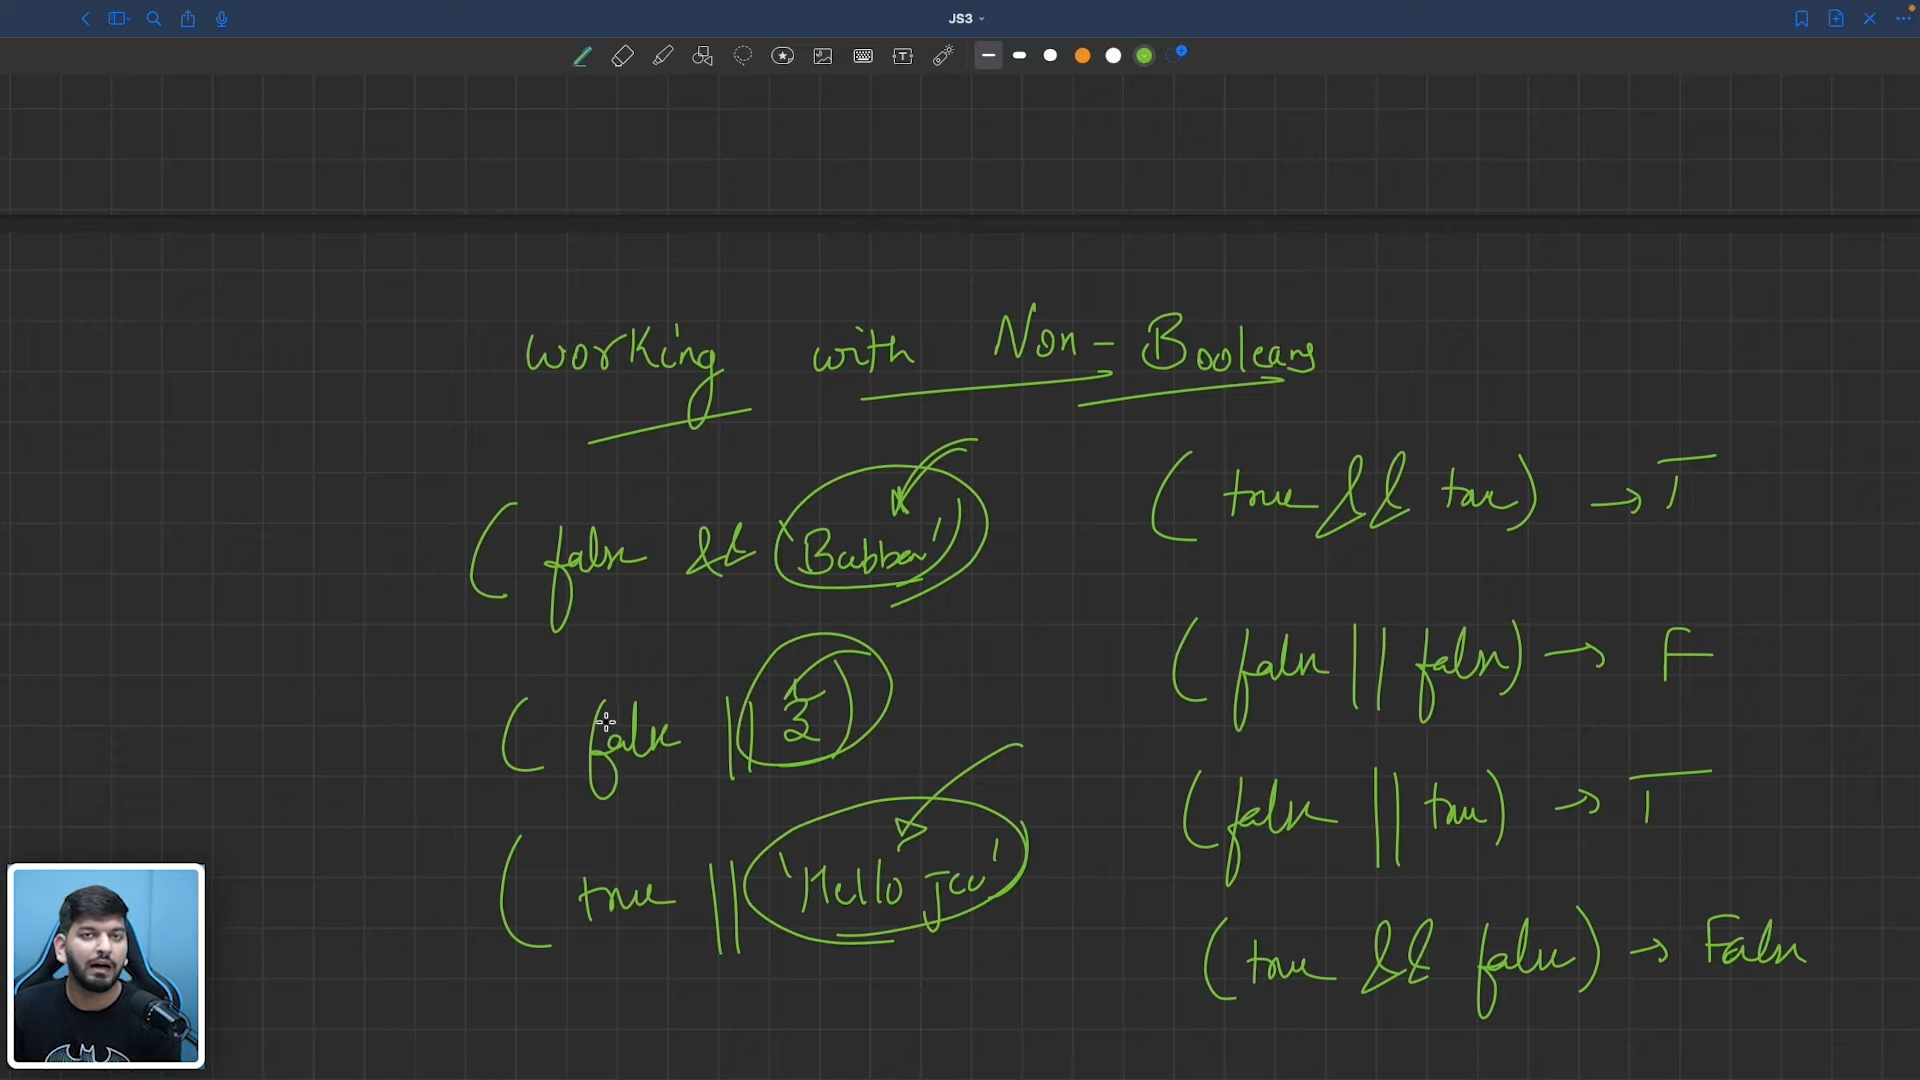 JS3
Working with Non-Booleans
( false && 'Babbar' )
( false || 2 )
( true || 'Hello jee'
( true && true ) → T
( false || false ) → F
( false || true ) → T
( true && false ) → False